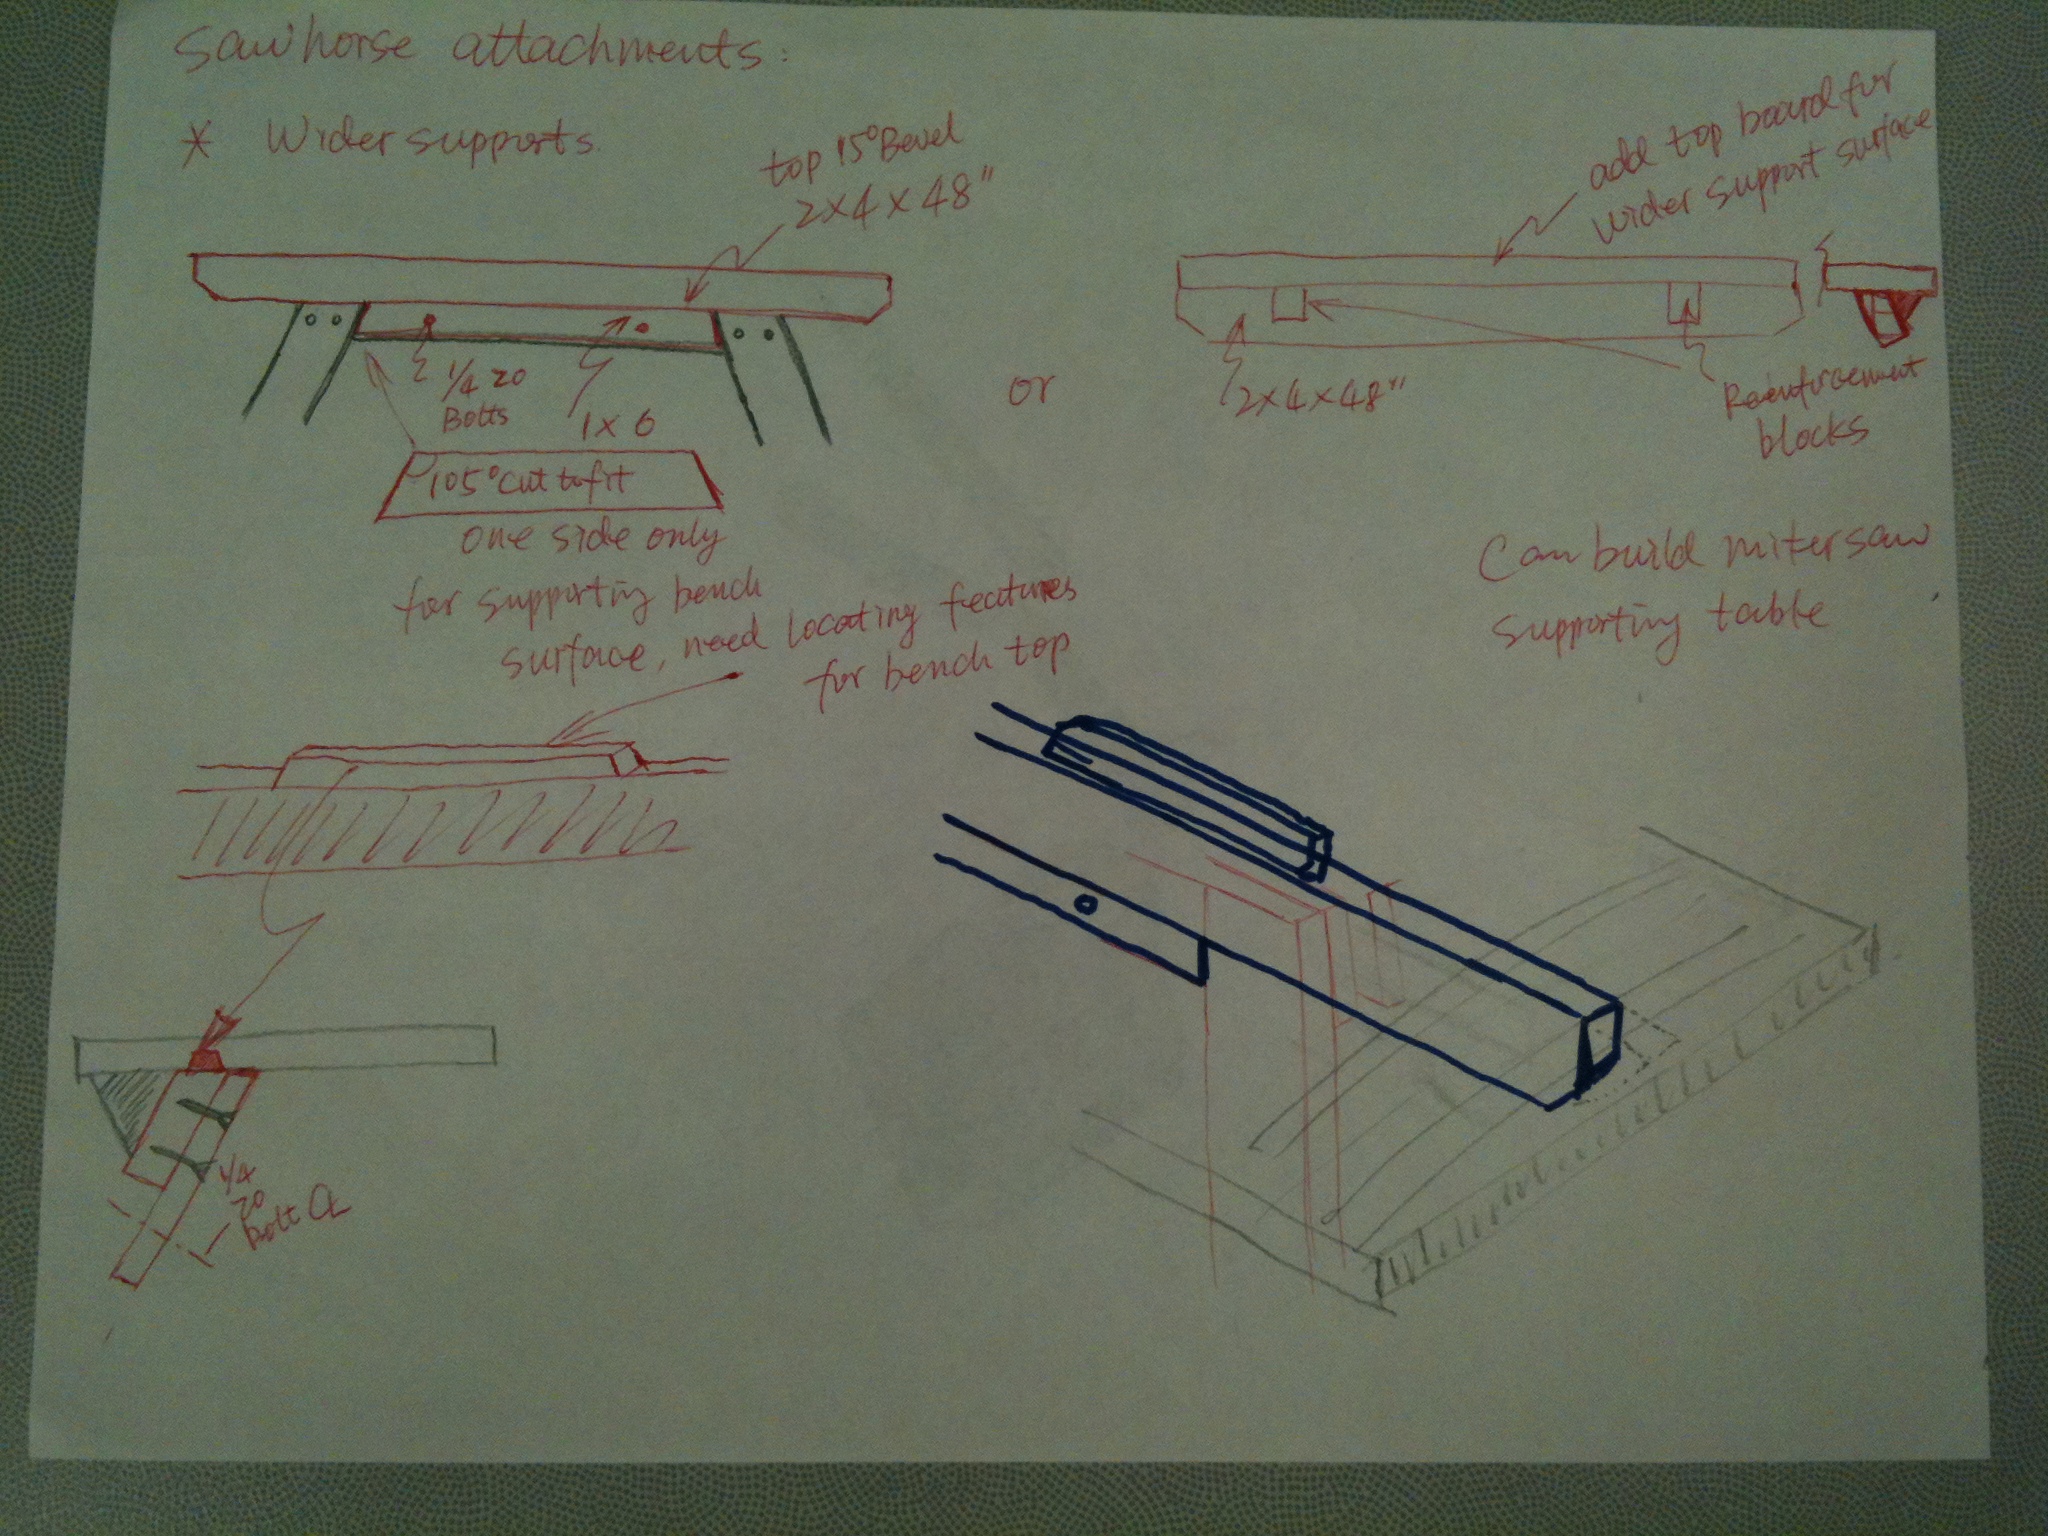 Sawhorse attachments:
* Wider supports.
top 15° Bevel
2x4x48"
1/4 20
Bolts
1x6
105° cut to fit
one side only
or
add top board for
wider support surface
2x4x48"
Reenforcement
blocks
for supporting bench
surface, need locating features
for bench top
Can build miter saw
supporting table
1/4
20
Bolt CL